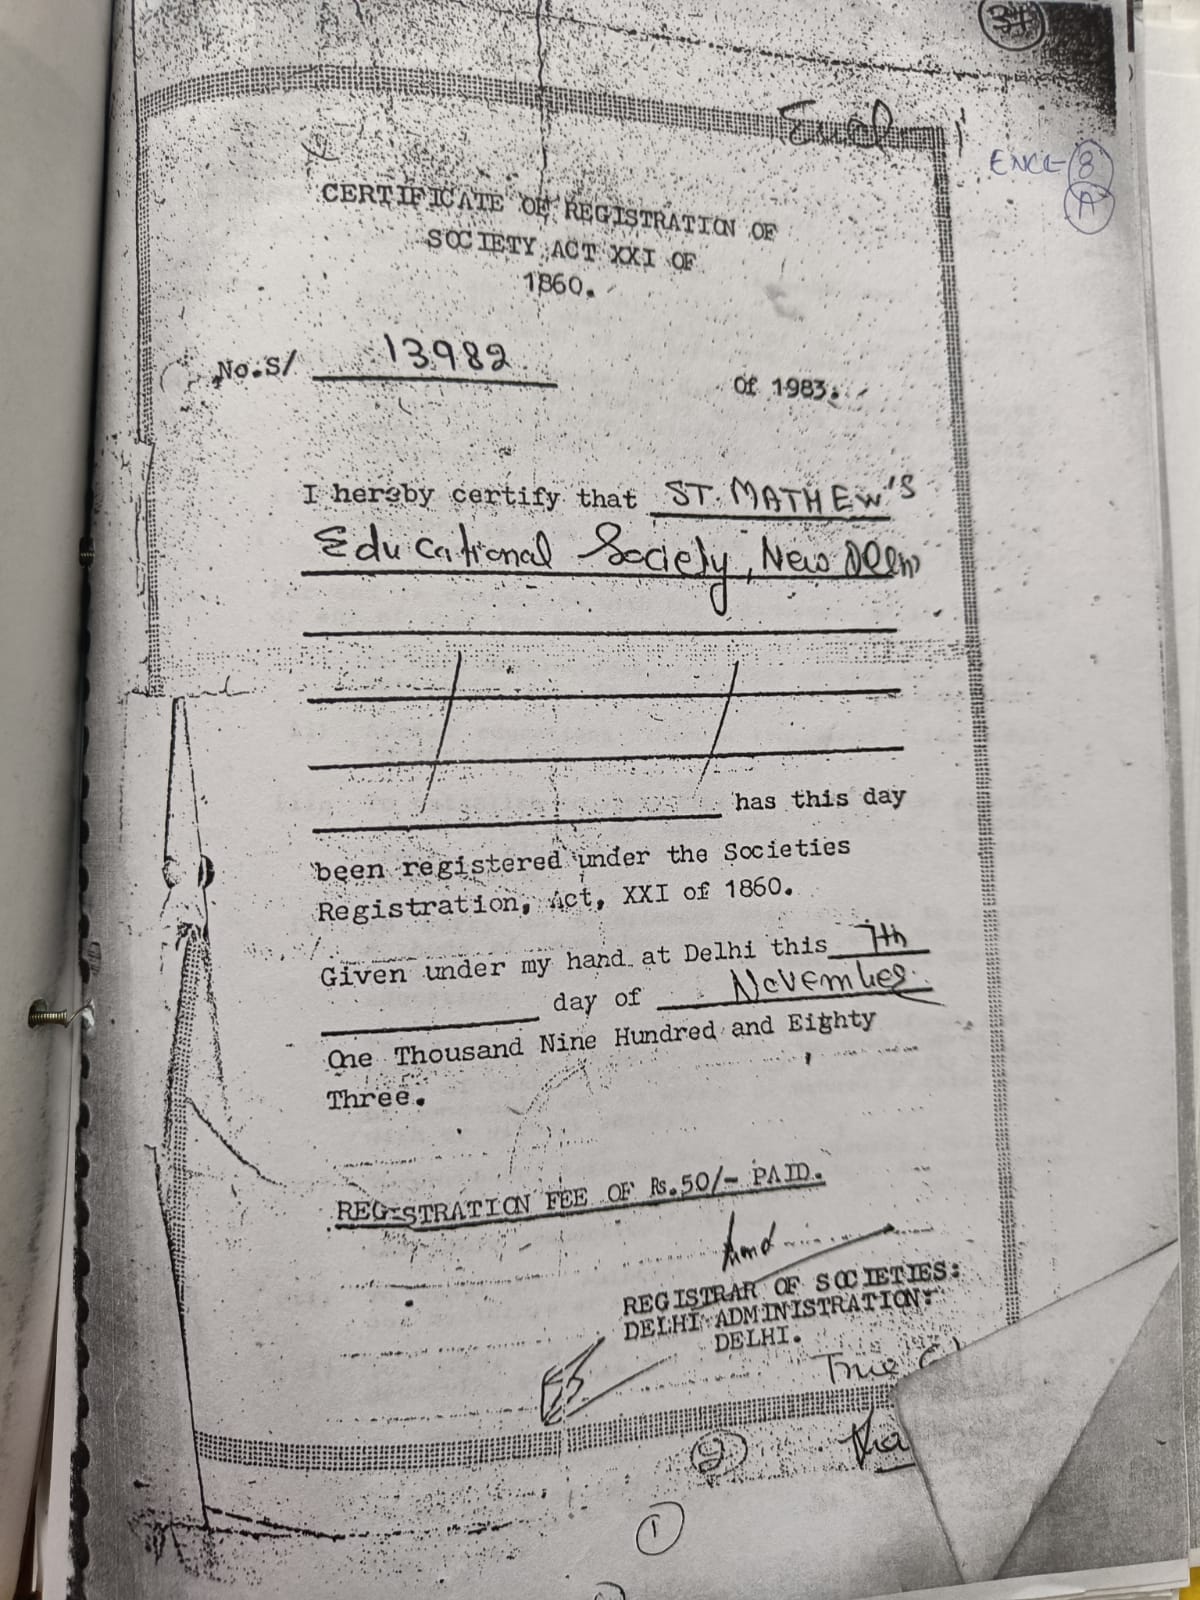 37
Encl 1
ENCL-8
A
CERTIFICATE OF REGISTRATION OF
SOCIETY ACT XXI OF
1860.
No.S/ 13982 Of 1983.
I hereby certify that ST. MATHEW'S
Educational Society, New Delhi
has this day
been registered under the Societies
Registration, Act, XXI of 1860.
Given under my hand at Delhi this 7th
day of November
One Thousand Nine Hundred and Eighty
Three.
REGISTRATION FEE OF Rs.50/- PAID.
REGISTRAR OF SOCIETIES:
DELHI ADMINISTRATION:
DELHI.
True
2
1